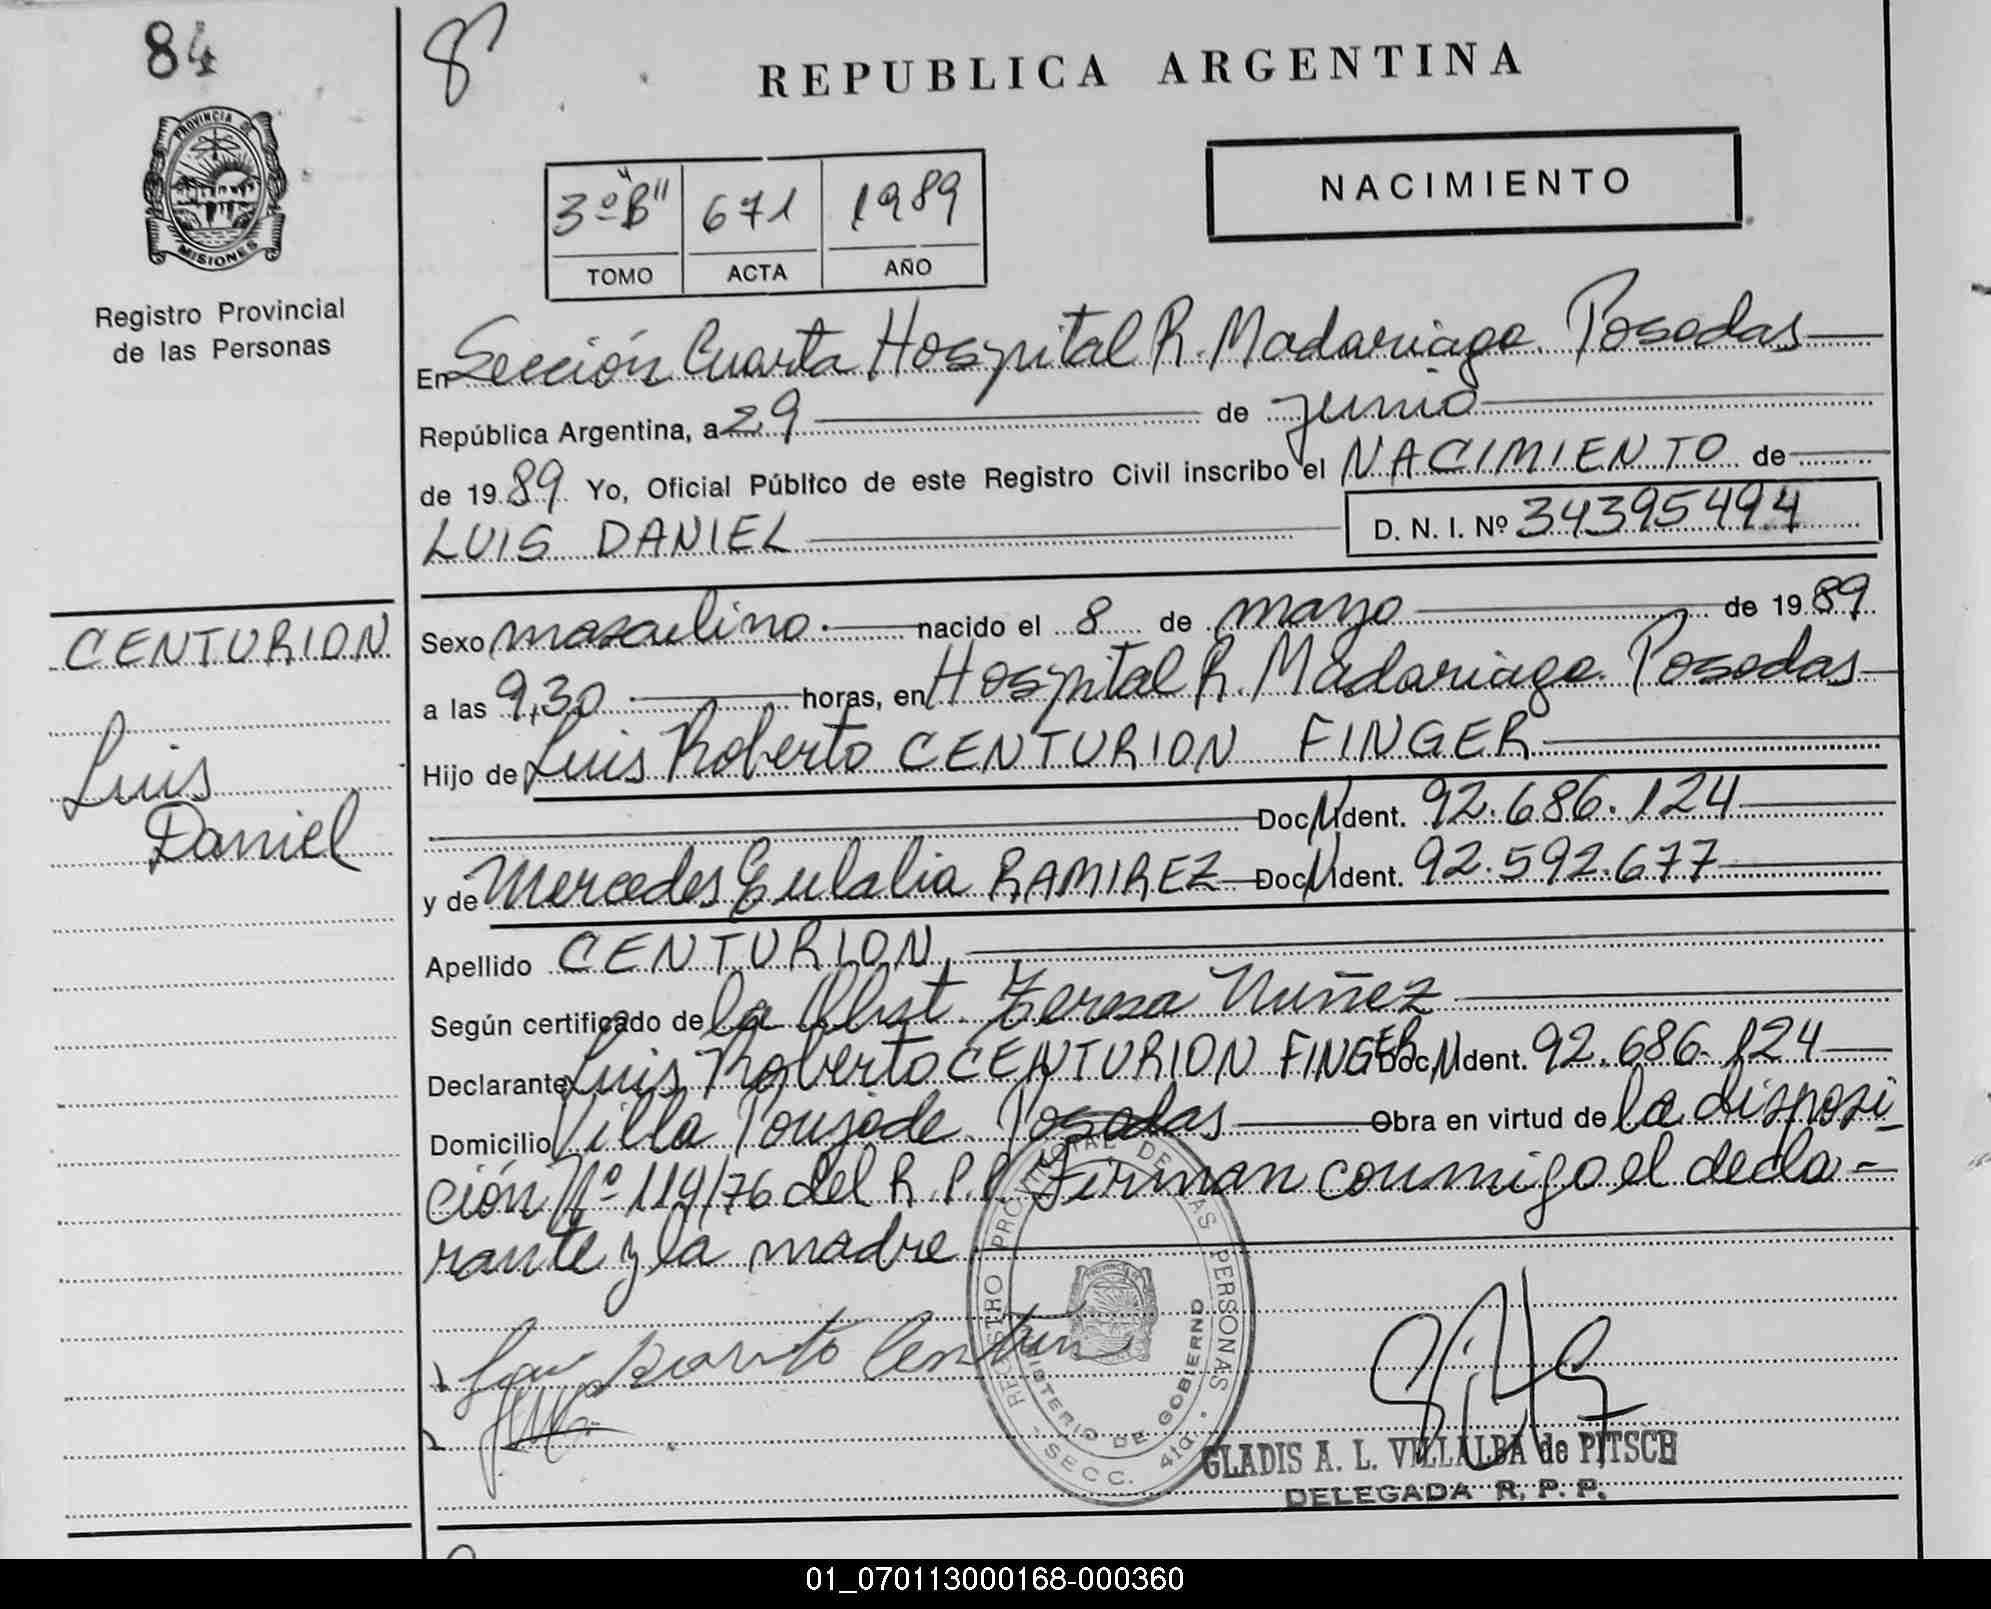 84
8
REPUBLICA ARGENTINA
PROVINCIA DE
MISIONES
Registro Provincial
de las Personas
NACIMIENTO
3º "B" 671 1989
TOMO ACTA AÑO
En Sección Cuarta Hospital R. Madariaga. Posadas
República Argentina, a 29 de junio
de 1989 Yo, Oficial Público de este Registro Civil inscribo el NACIMIENTO de
LUIS DANIEL D. N. I. Nº 34395494
CENTURION
Luis
Daniel
Sexo masculino. nacido el 8 de mayo de 1989
a las 9,30 horas, en Hospital R. Madariaga. Posadas
Hijo de Luis Roberto CENTURION FINGER
Doc. N Ident. 92.686.124
y de Mercedes Eulalia RAMIREZ Doc. N Ident. 92.592.677
Apellido CENTURION
Según certificado de la Obst. Teresa Nuñez
Declarante Luis Roberto CENTURION FINGER Doc. N Ident. 92.686.124
Domicilio Villa Poujade. Posadas Obra en virtud de la disposi
ción Nº 119/76 del R.P.P. Firman conmigo el decla-
rante y la madre
REGISTRO PROVINCIAL DE LAS PERSONAS
MINISTERIO DE GOBIERNO
SECC. 4ta.
GLADIS A. L. VILLALBA de PITSCH
DELEGADA R. P. P.
01_070113000168-000360